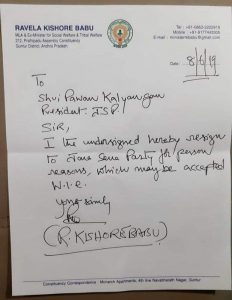 RAVELA KISHORE BABU
MLA & Ex-Minister for Social Welfare & Tribal Welfare
212, Prathipadu Assembly Constituency
Guntur District, Andhra Pradesh
Tel : +91-0863-2222919
Mobile : +91-9177443505
E-mail :
Date : 8/6/19
To
Shri Pawan Kalyan garu
President. JSP
Sir,
I the undersigned hereby resign
to Jana Sena Party for person
reasons, which may be accepted
W.I.E.
(R. KISHORE BABU)
Constituency Correspondence : Monarch Apartments, 4th line Navabharath Nagar, Guntur